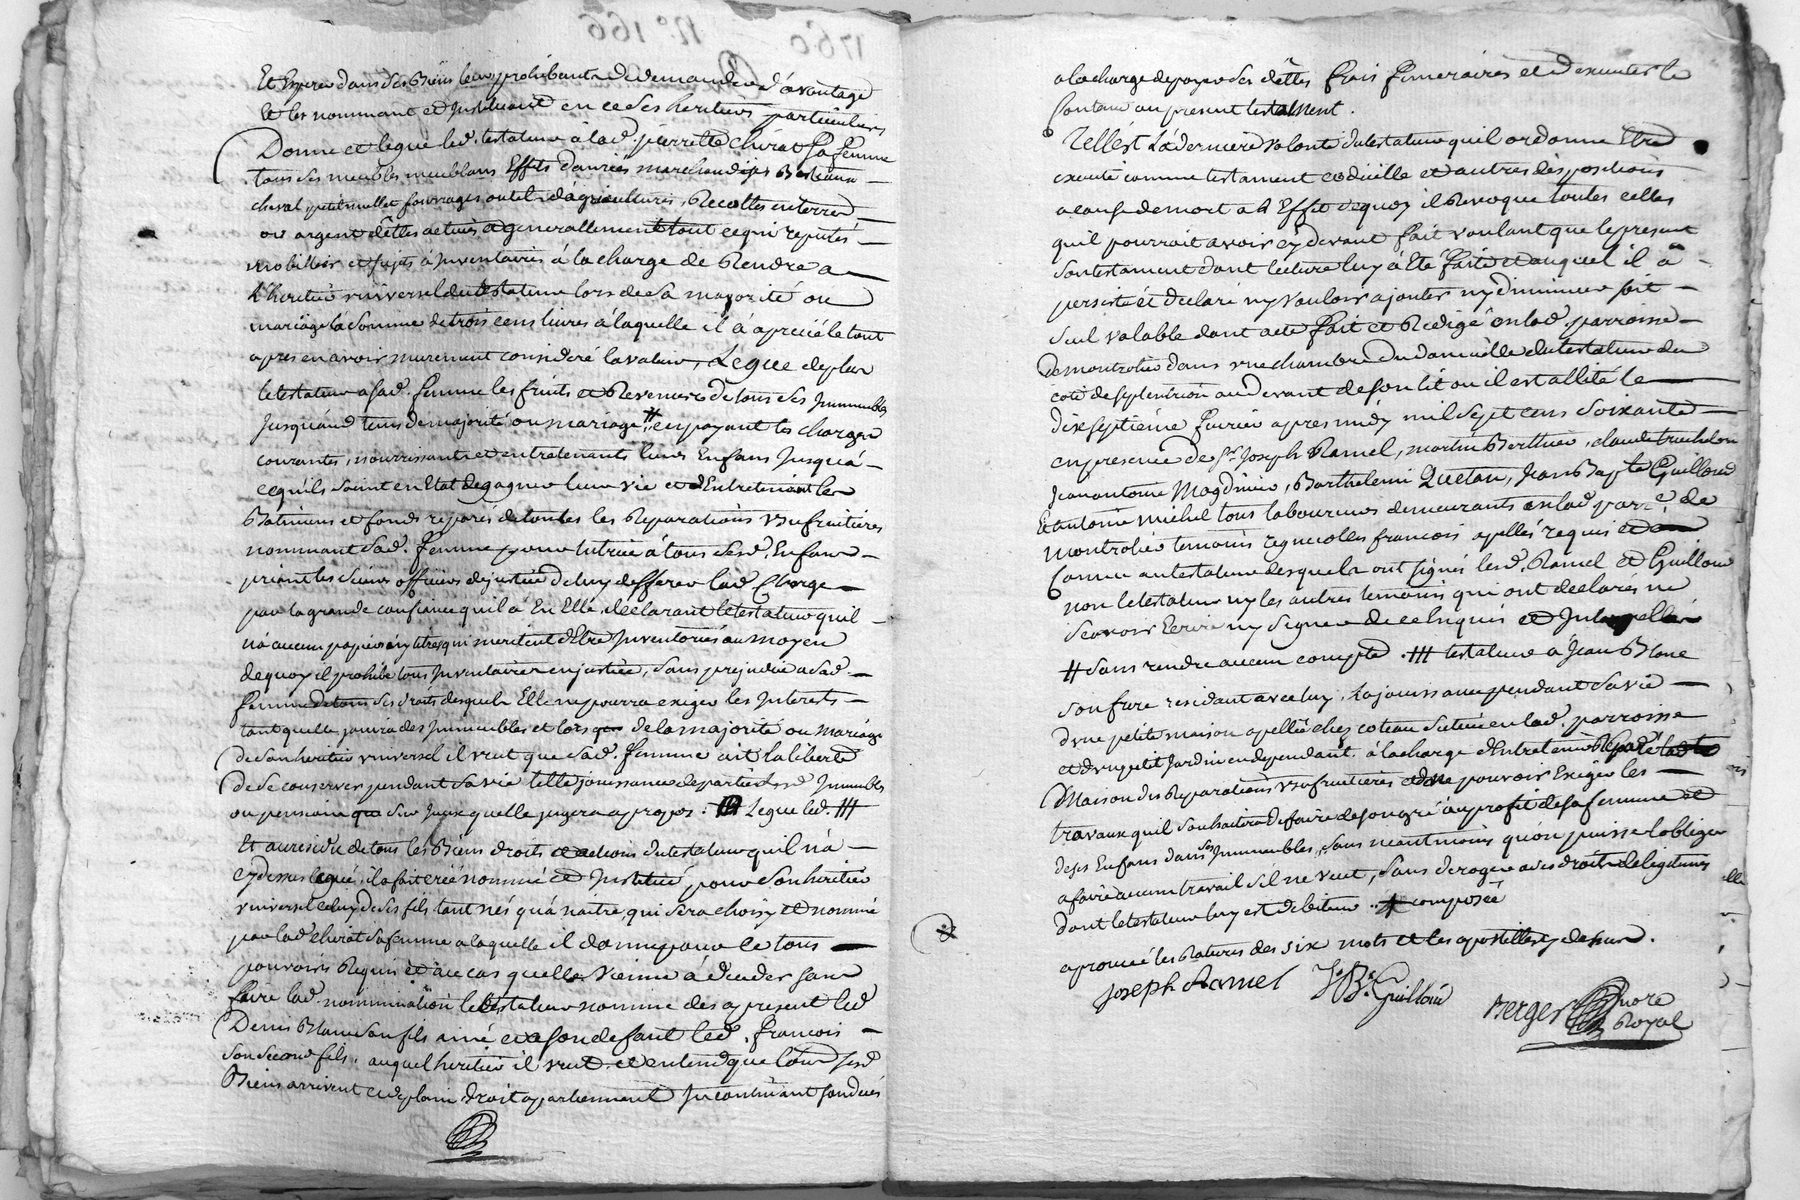 Et Esperer dans ses Biens leurs prohibants de demander d'avantage
et les nommant et Instituant en ce ses heritiers particuliers
Donne et legue led. testateur à lad. pierrette chirat sa femme
tous ses meubles meublans Effets danrées marchandises Bestiaux
cheval, petit mullet fourrages outils d'agricultures, Recoltes en terre
or argent dêttes actives et generallement tout ce qui reputés
mobilier et sujets à Inventaires à la charge de Rendre a
L'heritier universel du testateur lors de sa majorité ou
mariage la somme de trois cens livres à laquelle il à aprecié le tout
apres en avoir murement consideré la valeur, Legue de plus
le testateur a sad. femme les fruits et Revenus de tous ses Immeubles
Jusqu'aud. tems de majorité ou mariage # en payant les charges
courantes, nourrissant et entretenants leurs Enfans Jusqu'à
ce qu'ils soint en Etat de gagner leur vie et d'Entretenir les
Batimens et fonds reparés de toutes les Reparations usufruitieres
nommant sad. femme pour tutrice à tous sesd. Enfans
priant les sieurs officiers de justice de luy defferer lad. charge
par la grande confiance qu'il à En Elle, declarant le testateur qu'il
n'a aucun papiers ny titres qui meritent d'Etre Inventoriés au moyen
de quoy il prohibe tous Inventaires en justice, sans prejudice a sad.
femme de tous ses droits desquels Elle ne pourra exiger les Interests
tant quelle jouira des Immeubles et lors de la majorité ou mariage
de son heritier universel il veut que sad. femme ait la liberté
de se conserver pendant sa vie telle jouissance de parties desd. Immeubles
ou pension sur Iceux quelle jugera apropos. Legue led. ///
Et au residu de tous les Biens droits et actions du testateur qu'il n'a
cy dessus legué, il a fait créé nommé et Institué pour son heritier
universel celuy de ses fils tant nés qu'à naitre, qui sera choisy et nommé
par lad. chirat sa femme a laquelle il donne pour ce tous
pouvoirs Requis et au cas quelle Vienne à deceder sans
faire lad. nommination le testateur nomme des apresent led.
Denis Blanc son fils ainé et a son defaut led. francois
son second fils. auquel heritier il veut et entend que tous sesd.
Biens arrivent et de plain droit apartiennent Incontinant son deces
a la charge de payer ses dêttes frais funeraires et d'executer le
contenu au present testament.
Telle est La derniere volonté du testateur quil ordonne Etre
executé comme testament codicille et autres dispositions
a cause de mort a L'Effet de quoy il Revoque toutes celles
qu'il pourrait avoir cy devant fait voulant que le present
son testament dont lecture luy à été faite et auquel il à
persisté et declaré ny vouloir ajouter ny diminuer soit
seul valable dont acte fait et Redigé en lad. parroisse
de montrotier dans une chambre du domicille du testateur du
coté de septentrion au devant de son lit ou il est allité le
dix septiéme fevrier apres midy mil sept cens soixante
en presence de Sr. Joseph Ramel, martin Berthier, claude truchelon
Jean antoine Magdinier, Barthelemi Quetan, Jean Bapte Guilloud
Et antoine michel tous laboureurs demeurants en lad. parre. de
montrotier temoins regnicolles francois apellés requis et
Connu au testateur desquels ont signés lesd. Ramel et Guilloud
non le testateur ny les autres temoins qui ont declarés ne
scavoir Ecrire ny signer de ce Enquis et Interpellés
# sans rendre aucun compte. /// testateur à Jean Blanc
son frere residant avec luy, la jouissance pendant sa vie
d'une petite maison apellée chez coteau située en lad. parroisse
et d'un petit Jardin en dependant. à la charge d'Entretenir Reparé lad.
Maison des Reparations usufruitieres et de ne pouvoir Exiger les
travaux quil souhaitera de faire de son gré au profit de sa femme et
de ses Enfans dans ses Immeubles, sans neantmoins qu'on puisse l'obliger
a faire aucun travail s'il ne veut, sans deroger a ses droits de legitimes
dont le testateur luy est debiteur .. # composée
aprouvé les Ratures des six mots et les apostilles cy dessus.
Joseph Ramel J. B. Guilloud Berger nore
Royal